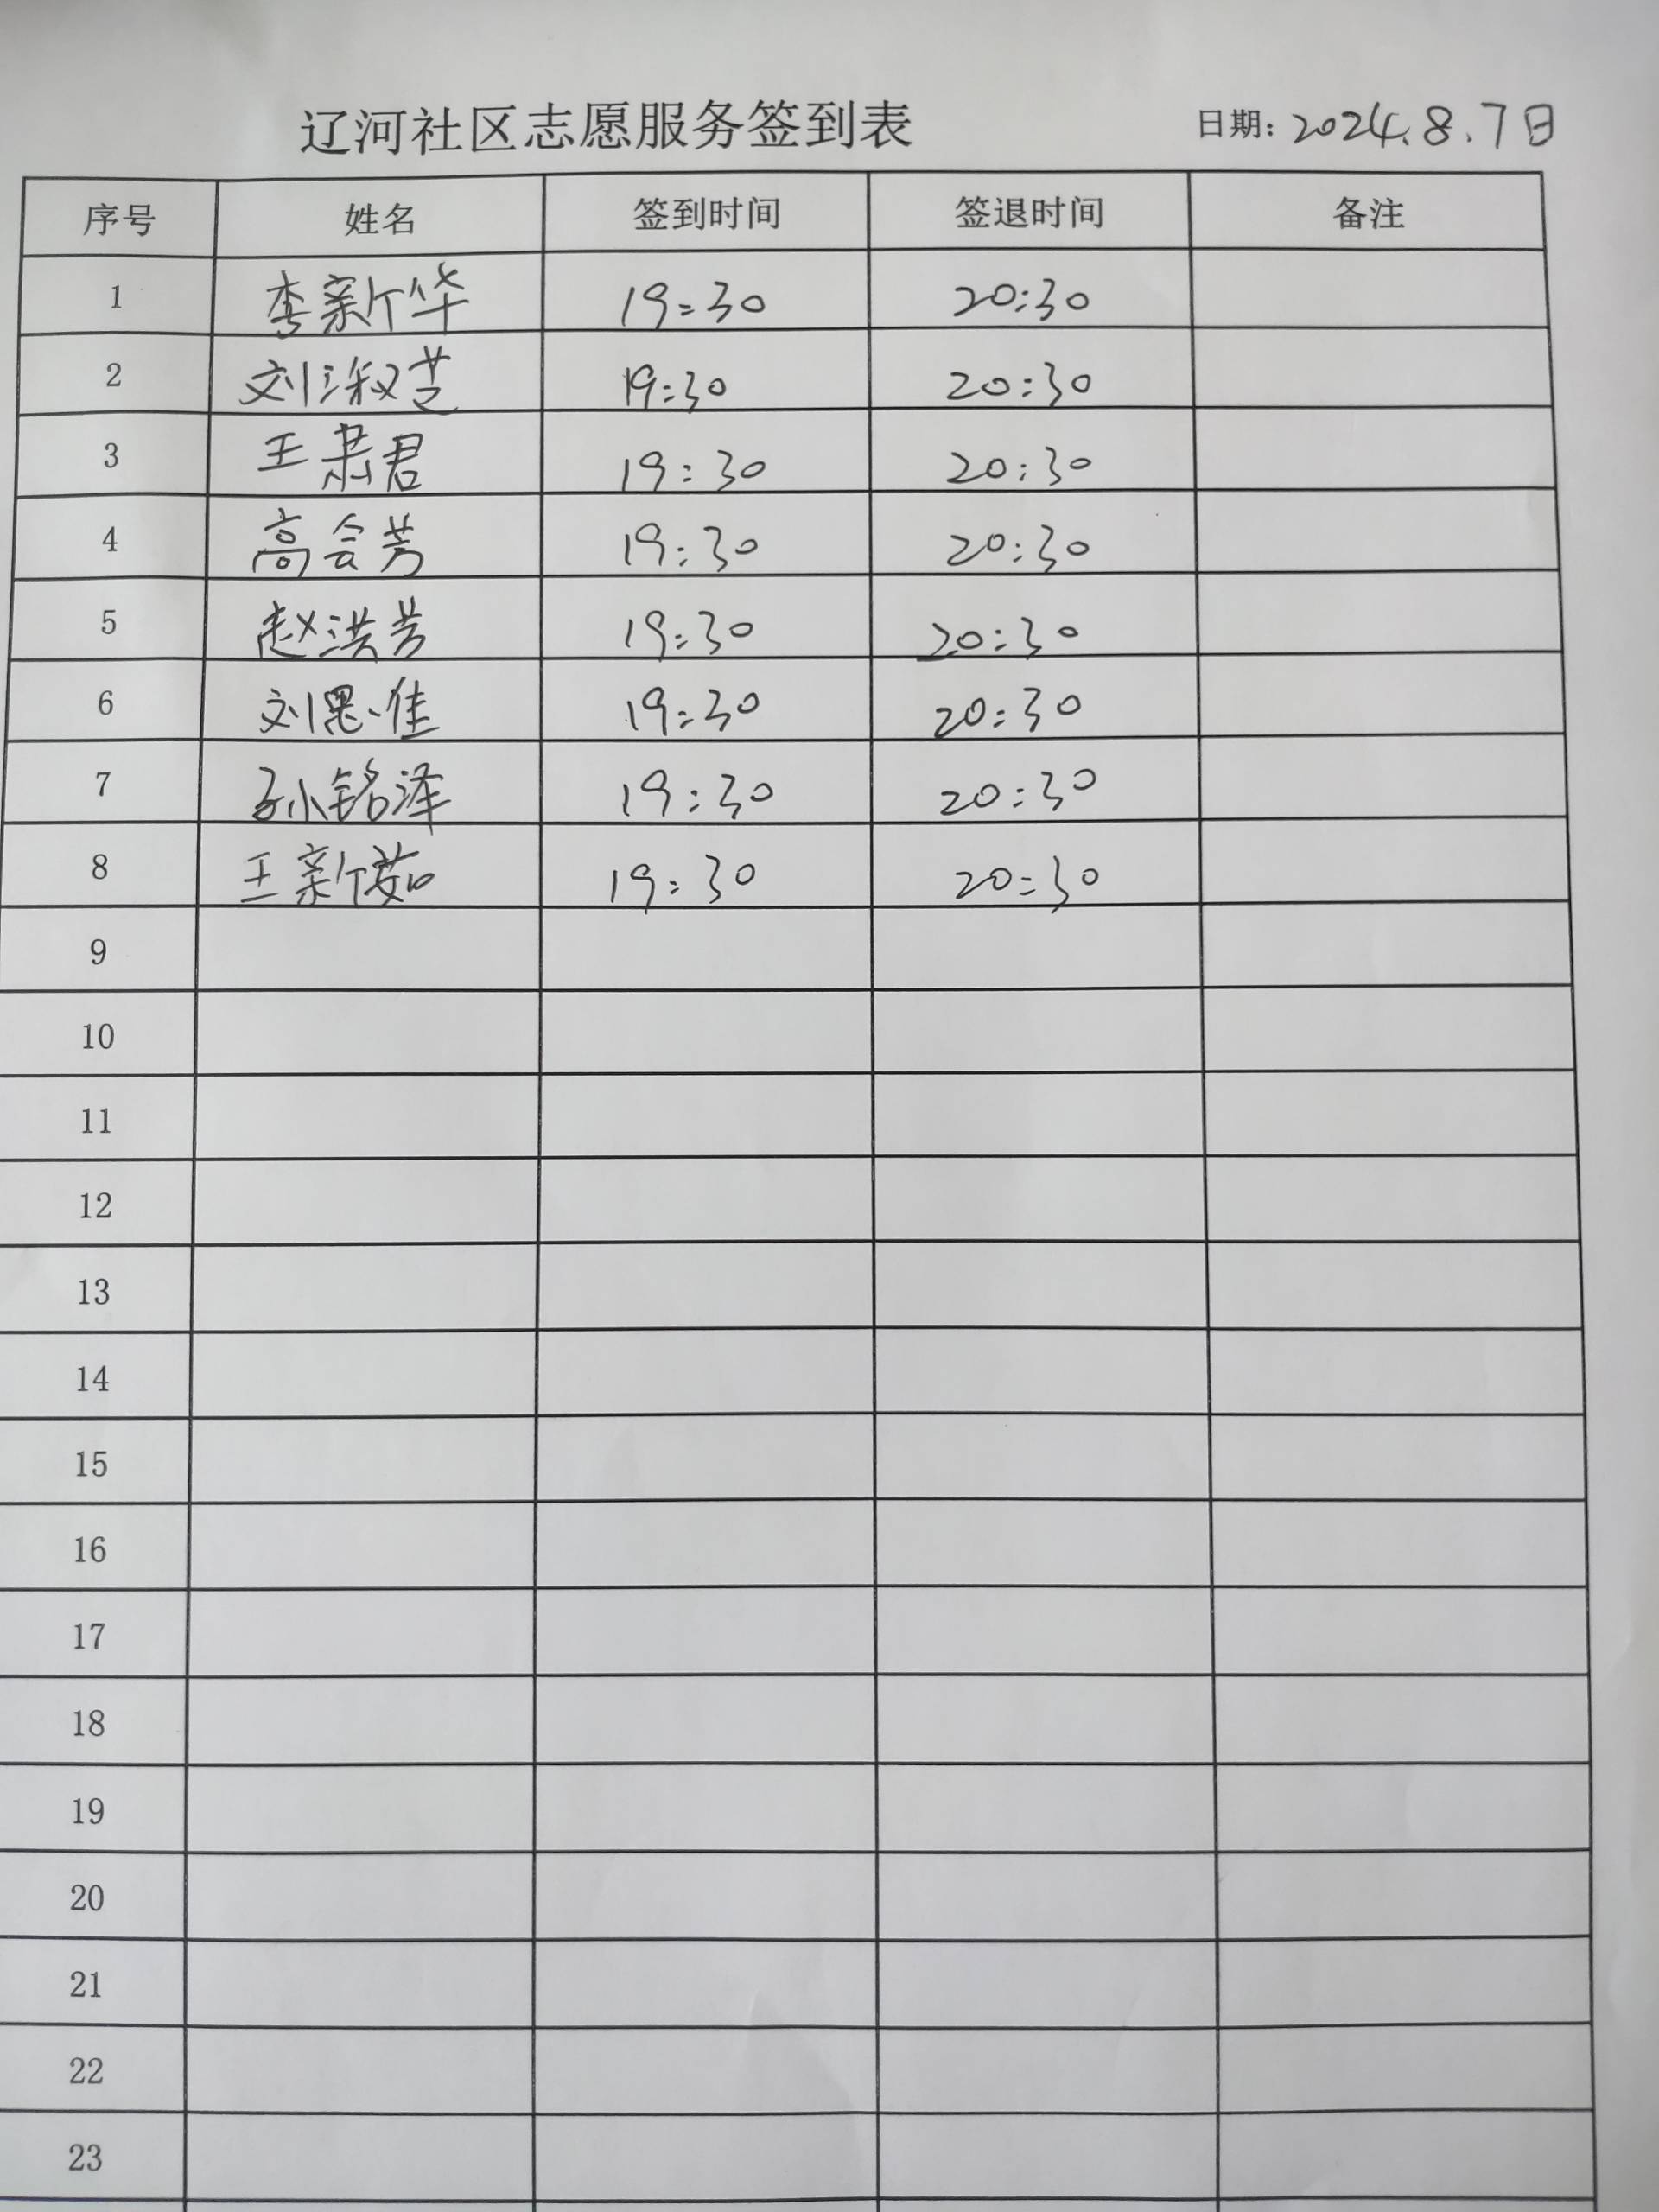 辽河社区志愿服务签到表 日期：2024.8.7日
序号 姓名 签到时间 签退时间 备注
1 李新华 19:30 20:30
2 刘淑芝 19:30 20:30
3 王肃君 19:30 20:30
4 高会芳 19:30 20:30
5 赵洪芳 19:30 20:30
6 刘思佳 19:30 20:30
7 孙铭泽 19:30 20:30
8 王新茹 19:30 20:30
9
10
11
12
13
14
15
16
17
18
19
20
21
22
23